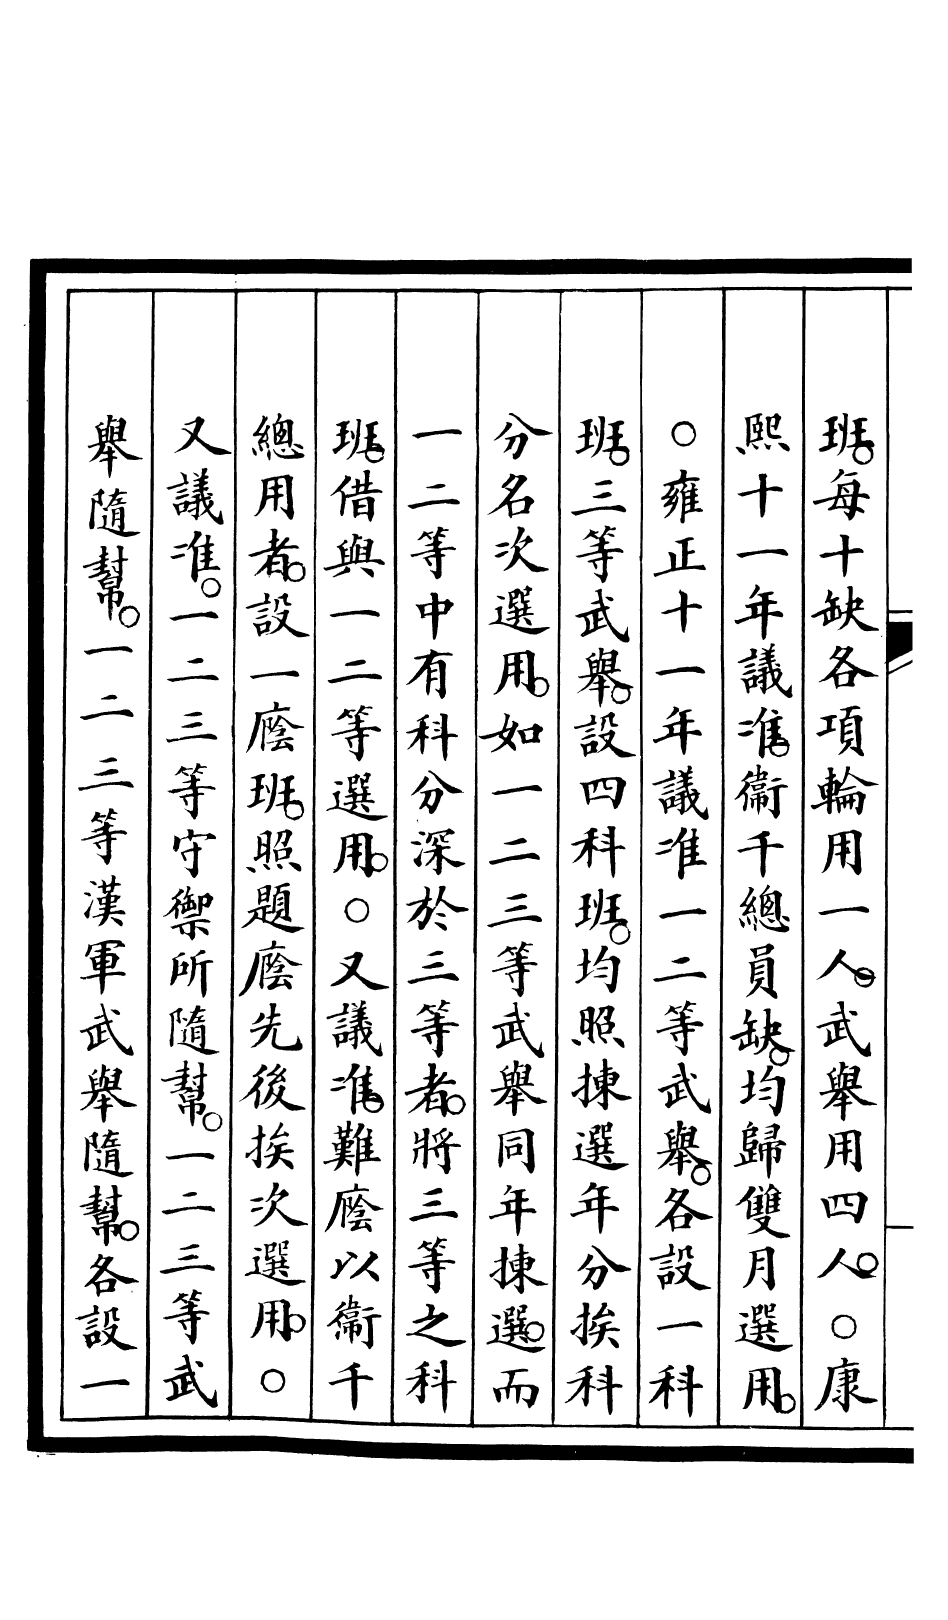 班。每十缺各項輪用一人。武舉用四人。○康
熙十一年議准。衞千總員缺。均歸雙月選用。
○雍正十一年議准一二等武舉。各設一科
班。三等武舉。設四科班。均照揀選年分挨科
分名次選用。如一二三等武舉同年揀選。而
一二等中有科分深於三等者。將三等之科
班。借與一二等選用。○又議准。難廕以衞千
總用者。設一廕班。照題廕先後挨次選用。○
又議准。一二三等守禦所隨幫。一二三等武
舉隨幫。一二三等漢軍武舉隨幫。各設一